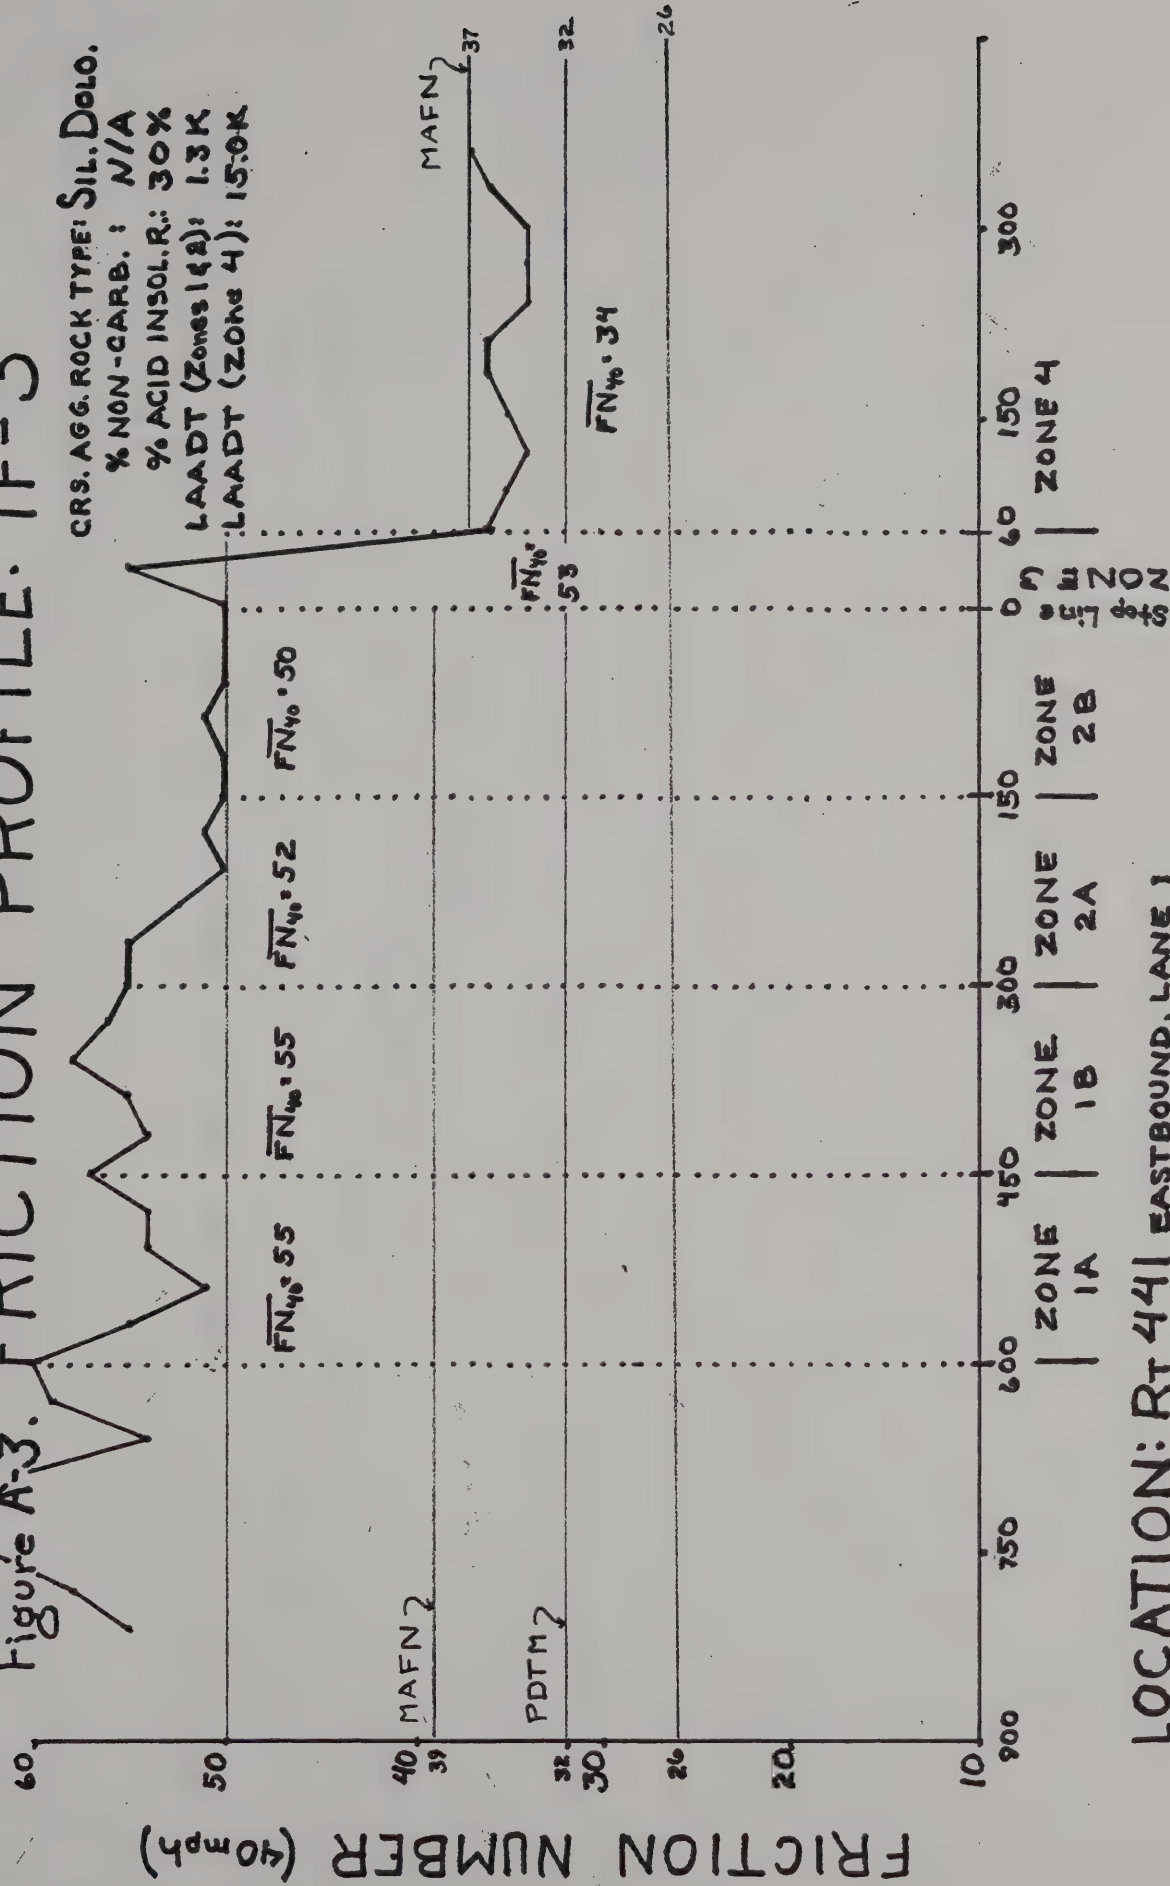 Figure A-3. FRICTION PROFILE: IF-5
CRS. AGG. ROCK TYPE: SIL. DOLO.
% NON-CARB. : N/A
% ACID INSOL. R.: 30%
LAADT (Zones 1&2): 1.3K
LAADT (Zone 4): 15.0K
FRICTION NUMBER (40 mph)
60
50
40
39
32
30
26
20
10
MAFN
PDTM
MAFN
37
32
26
FN40=55
FN40=55
FN40=52
FN40=50
FN40=
53
FN40=34
900
750
600
450
300
150
0
60
150
300
ZONE
1A
ZONE
1B
ZONE
2A
ZONE
2B
Stop
Line
ZONE 4
LOCATION: RT 441 EASTBOUND, LANE 1